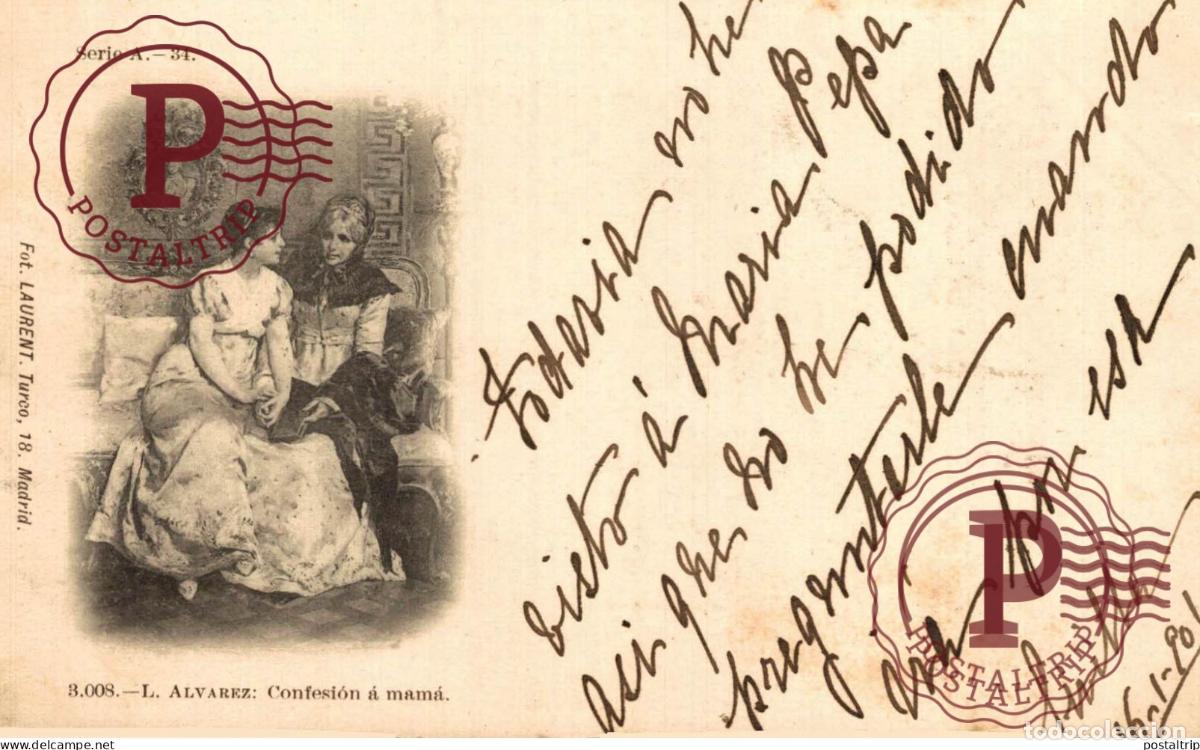 Serie A.—34.
P
POSTALTRIP
Fot. LAURENT. Turco, 18. Madrid.
3.008.—L. ALVAREZ: Confesión á mamá.
Todavia no he
visto á Maria Pepa
asi que no he podido
preguntarle cuando
por esa
P
POSTALTRIP
POSTALTRIP
todocoleccion
postaltrip
postaltrip